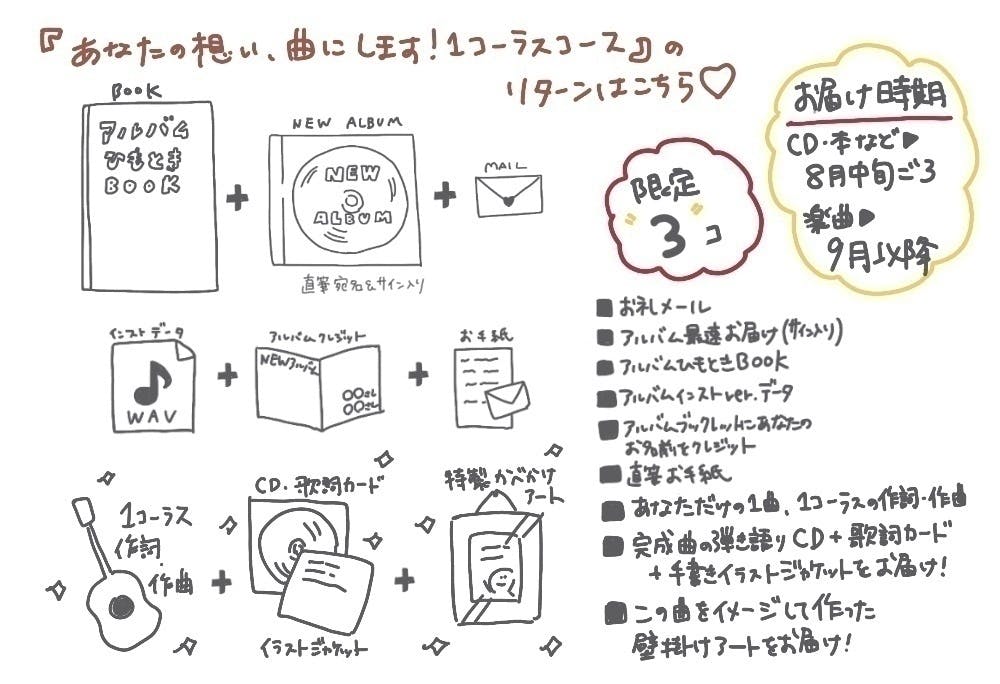 『あなたの想い、曲にします!1コーラスコース』の
リターンはこちら♡
BOOK
アルバム
ひもとき
BOOK
+
NEW ALBUM
NEW
ALBUM
直筆宛名&サイン入り
+
MAIL
限定
3コ
お届け時期
CD・本など▶
8月中旬ごろ
楽曲▶
9月以降
インストデータ
WAV
+
アルバムクレジット
NEWアルバム
〇〇さん
〇〇さん
+
お手紙
1コーラス
作詞・
作曲
+
CD・歌詞カード
イラストジャケット
+
特製かべかけ
アート
■お礼メール
■アルバム最速お届け(サイン入り)
■アルバムひもときBOOK
■アルバムインストver.データ
■アルバムブックレットにあなたの
お名前をクレジット
■直筆お手紙
■あなただけの1曲、1コーラスの作詞・作曲
■完成曲の弾き語りCD+歌詞カード
+手書きイラストジャケットをお届け!
■この曲をイメージして作った
壁掛けアートをお届け!